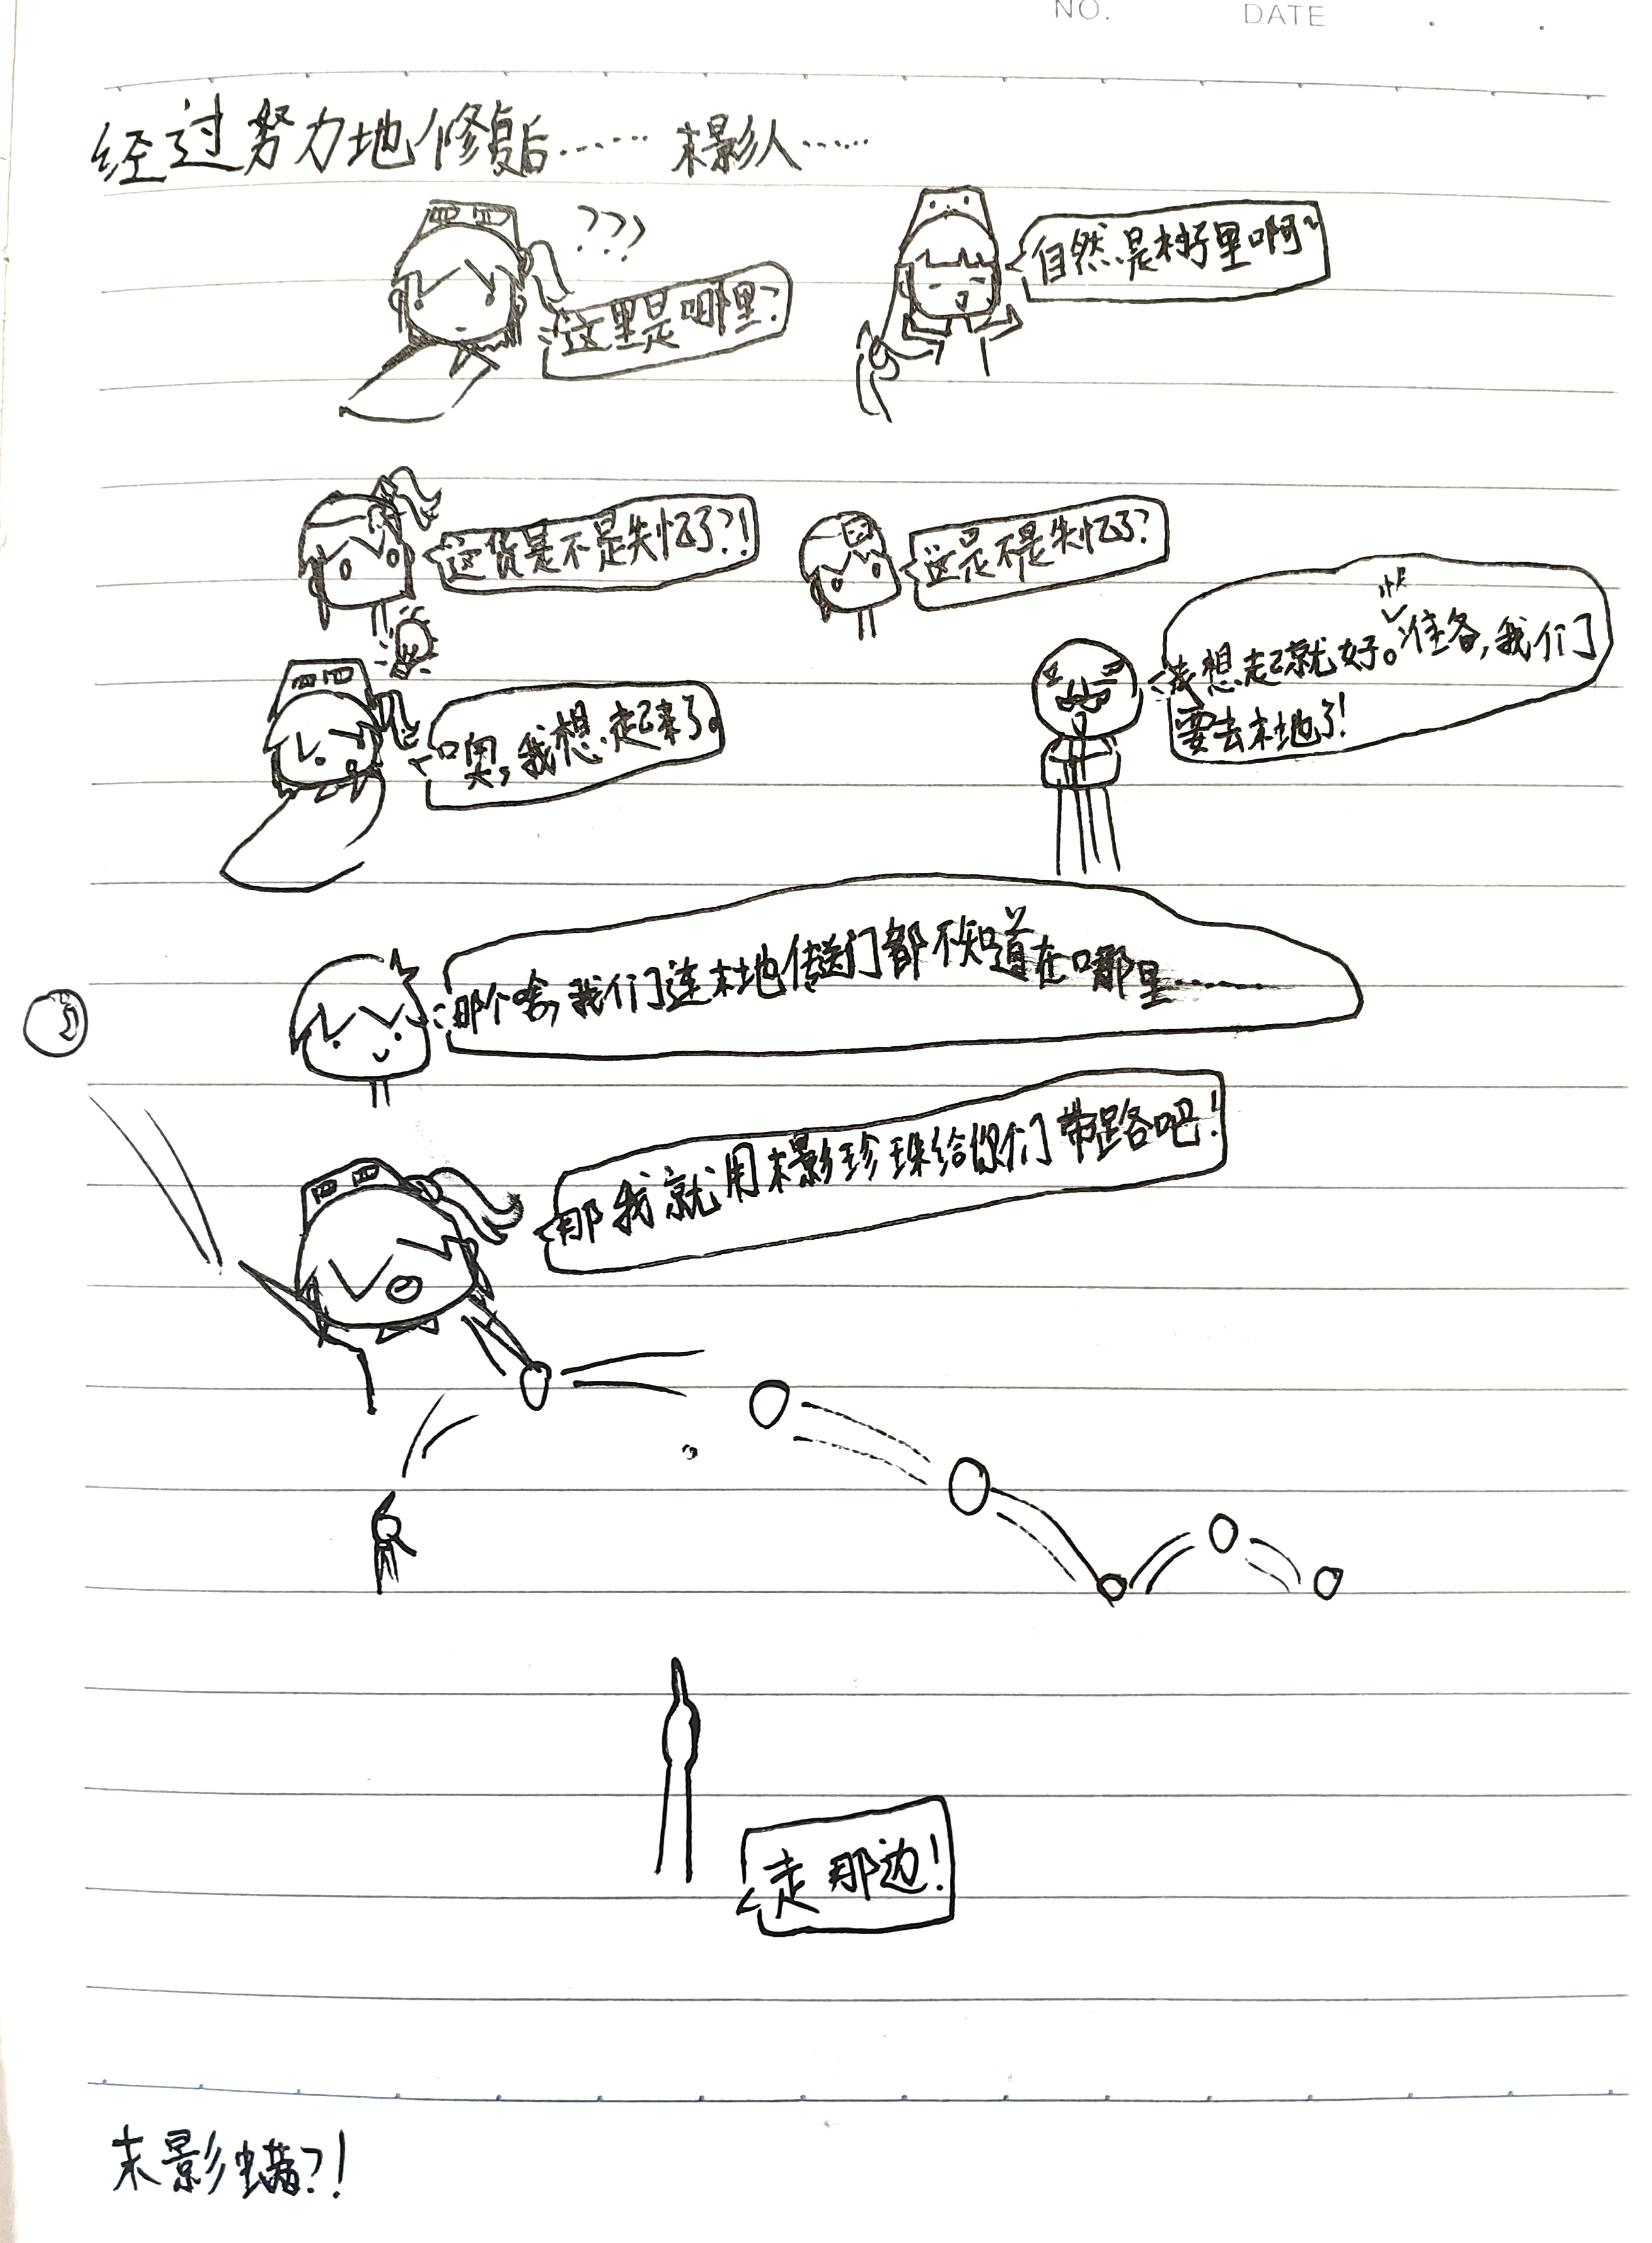 NO. DATE
经过努力地修复后…… 末影人……
???
这里是哪里?
自然是村子里啊~
这货是不是失忆了?!
这是不是失忆了?
噢,我想起来了。
想起就好。快准备,我们
要去末地了!
那个啥,我们连末地传送门都不知道在哪里……
那我就用末影珍珠给你们带路吧!
走那边!
末影螨?!